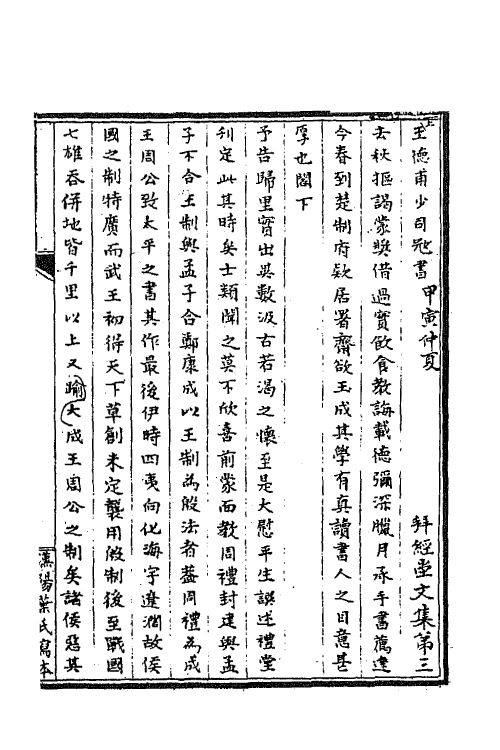 上王德甫少司寇書　甲寅仲夏　拜經堂文集第三
去秋摳謁蒙奬借過實飲食教誨載德彌深臘月承手書薦達
今春到楚制府款居署齋欲玉成其學有真讀書人之目意甚
厚也閣下
予告歸里實出異數汲古若渴之懷至是大慰平生譔述禮堂
刋定此其時矣士類聞之莫不欣喜前蒙面教周禮封建與孟
子不合王制與孟子合鄭康成以王制為殷法者葢周禮為成
王周公致太平之書其作最後伊時四夷向化海宇遼濶故侯
國之制特廣而武王初得天下草創未定襲用殷制後至戰國
七雄吞併地皆千里以上又踰大成王周公之制矣諸侯惡其
漢陽葉氏寫本